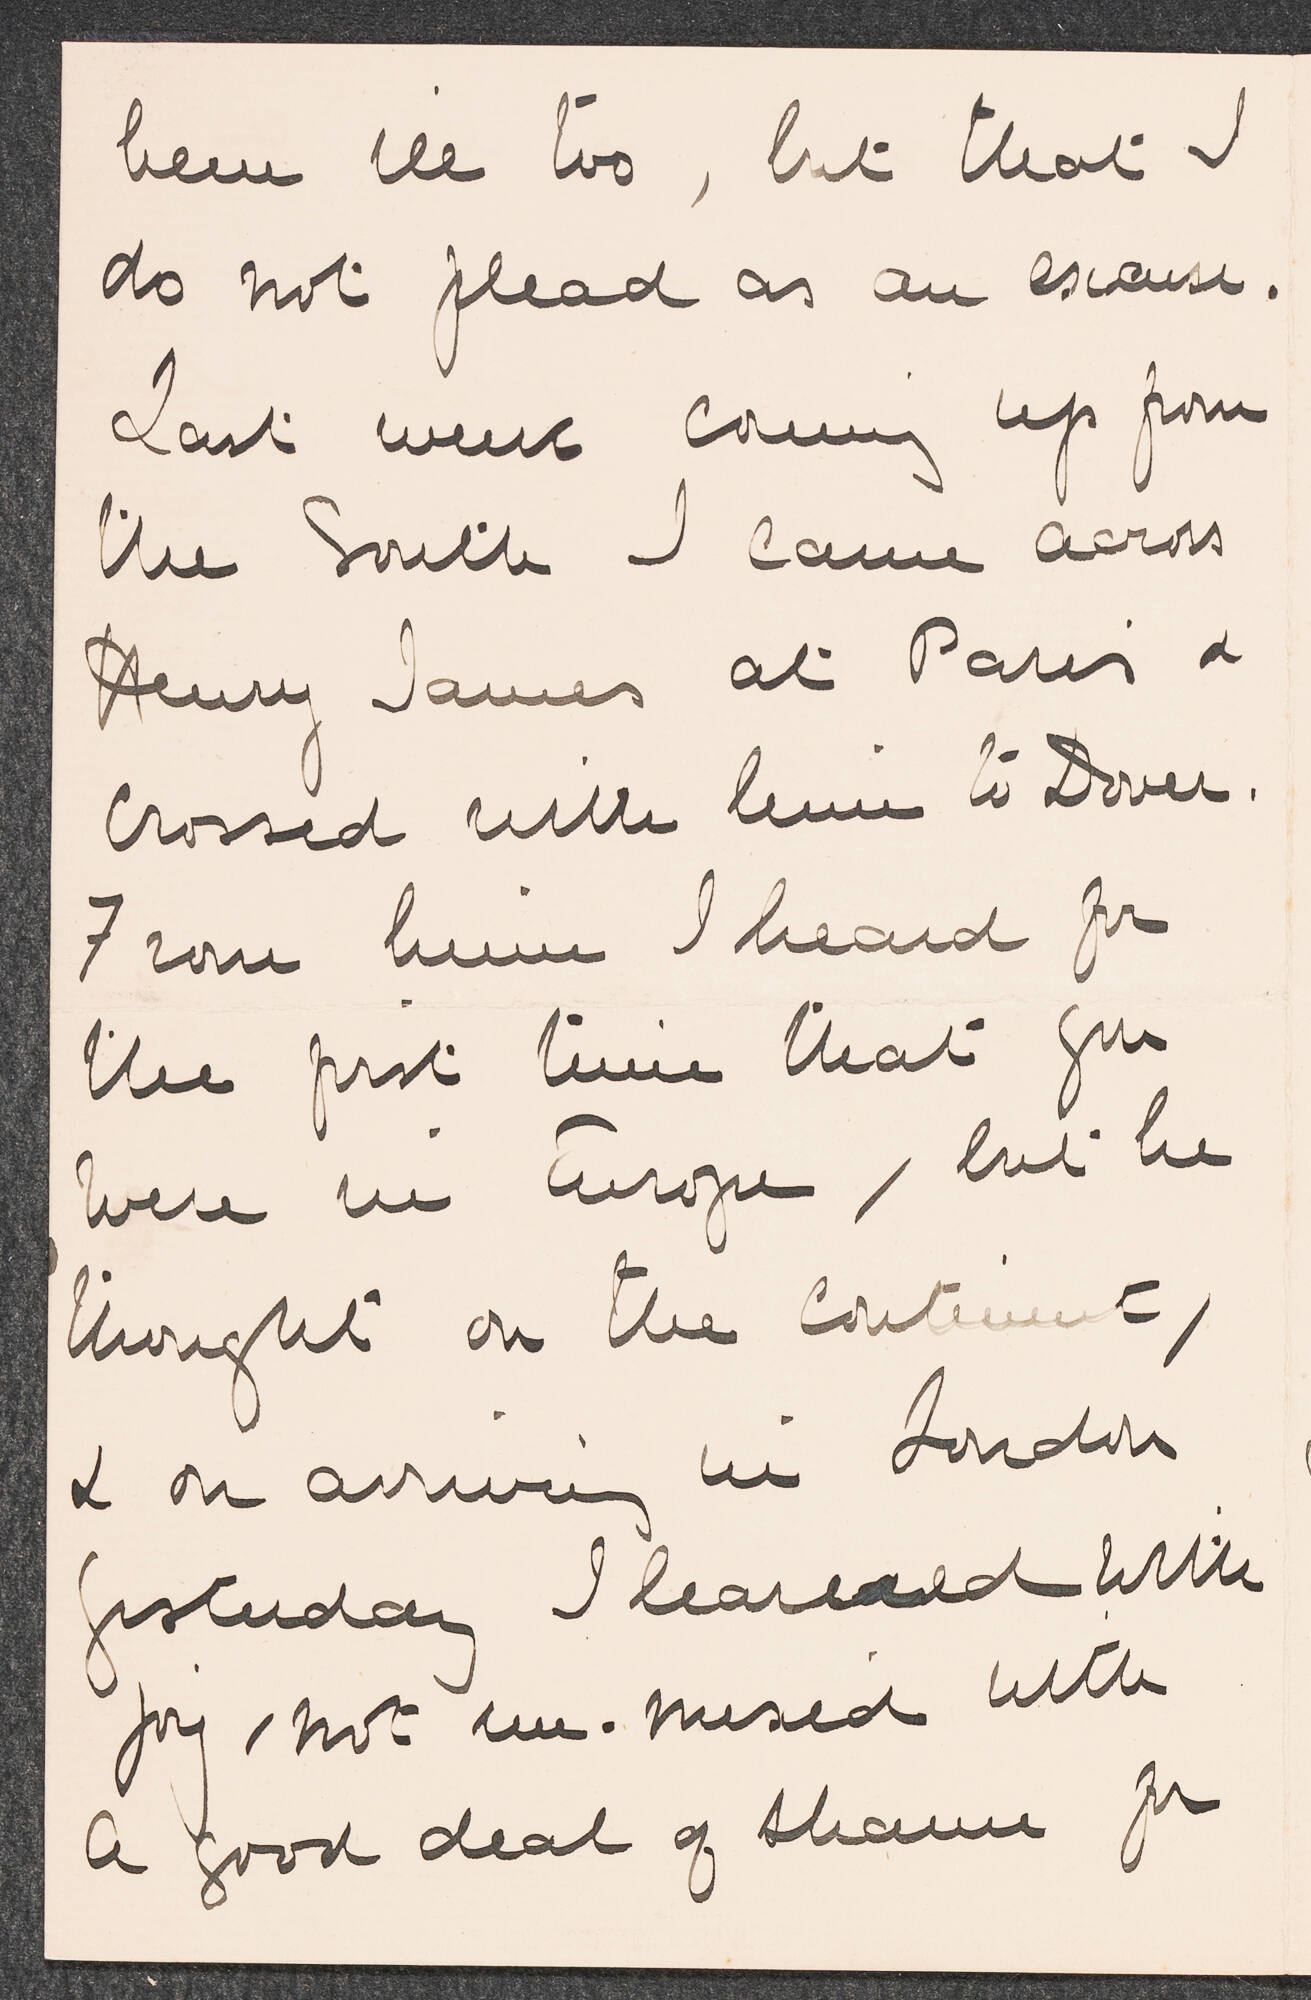 been ill too, but that I
do not plead as an excuse.
Last week coming up from
the South I came across
Henry James at Paris &
crossed with him to Dover.
From him I heard for
the first time that you
were in Europe, but he
thought on the continent,
& on arriving in London
yesterday I learned with
joy, not un-mixed with
a good deal of shame for